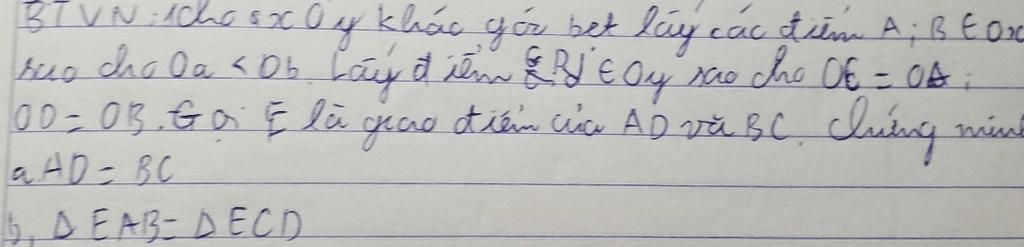 BTVN: 1 cho xOy khác góc bẹt lấy các điểm A; B ∈ Ox
sao cho Oa < Ob. Lấy điểm ∈ Oy sao cho OC = OA;
OD = OB. Gọi E là giao điểm của AD và BC. Chứng minh
a AD = BC
b, Δ EAB = Δ ECD